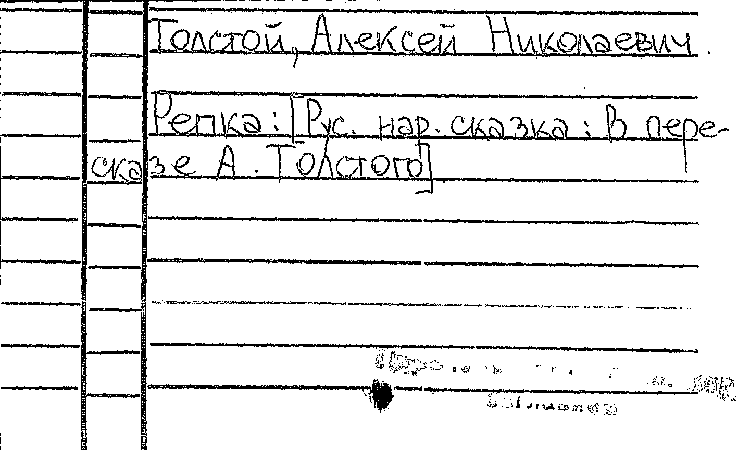 Толстой, Алексей Николаевич.
Репка: [Рус. нар. сказка: В пере-
сказе А. Толстого]